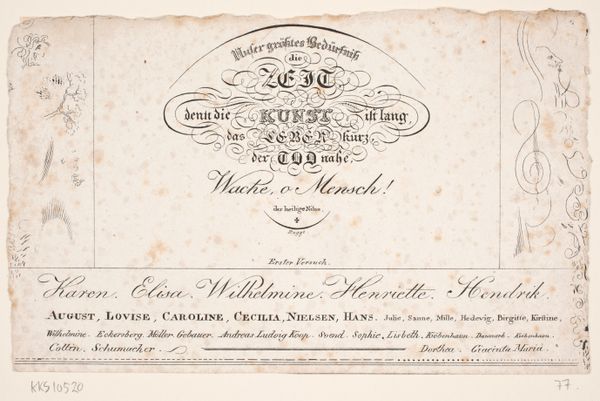 Unser größtes Bedürfniß
die
ZEIT
denn die KUNST ist lang,
das LEBEN kurz
der TOD nahe.
Wache, o Mensch!
der heilige Nilus.
Erster Versuch.
Karen. Elisa. Wilhelmine. Henriette. Hendrik.
AUGUST, LOVISE, CAROLINE, CECILIA, NIELSEN, HANS. Julie, Sanne, Mille, Hedevig, Birgitte, Kirstine,
Wilhelmine. Eckersberg. Möller. Gebauer. Andreas Ludvig Koop. Svend. Sophie, Lisbeth, Kiöbenhavn. Danmark. Kiøbenhavn.
Cotten. Schumacher. Dorthea. Giacinta Maria.
KKS10520
77.